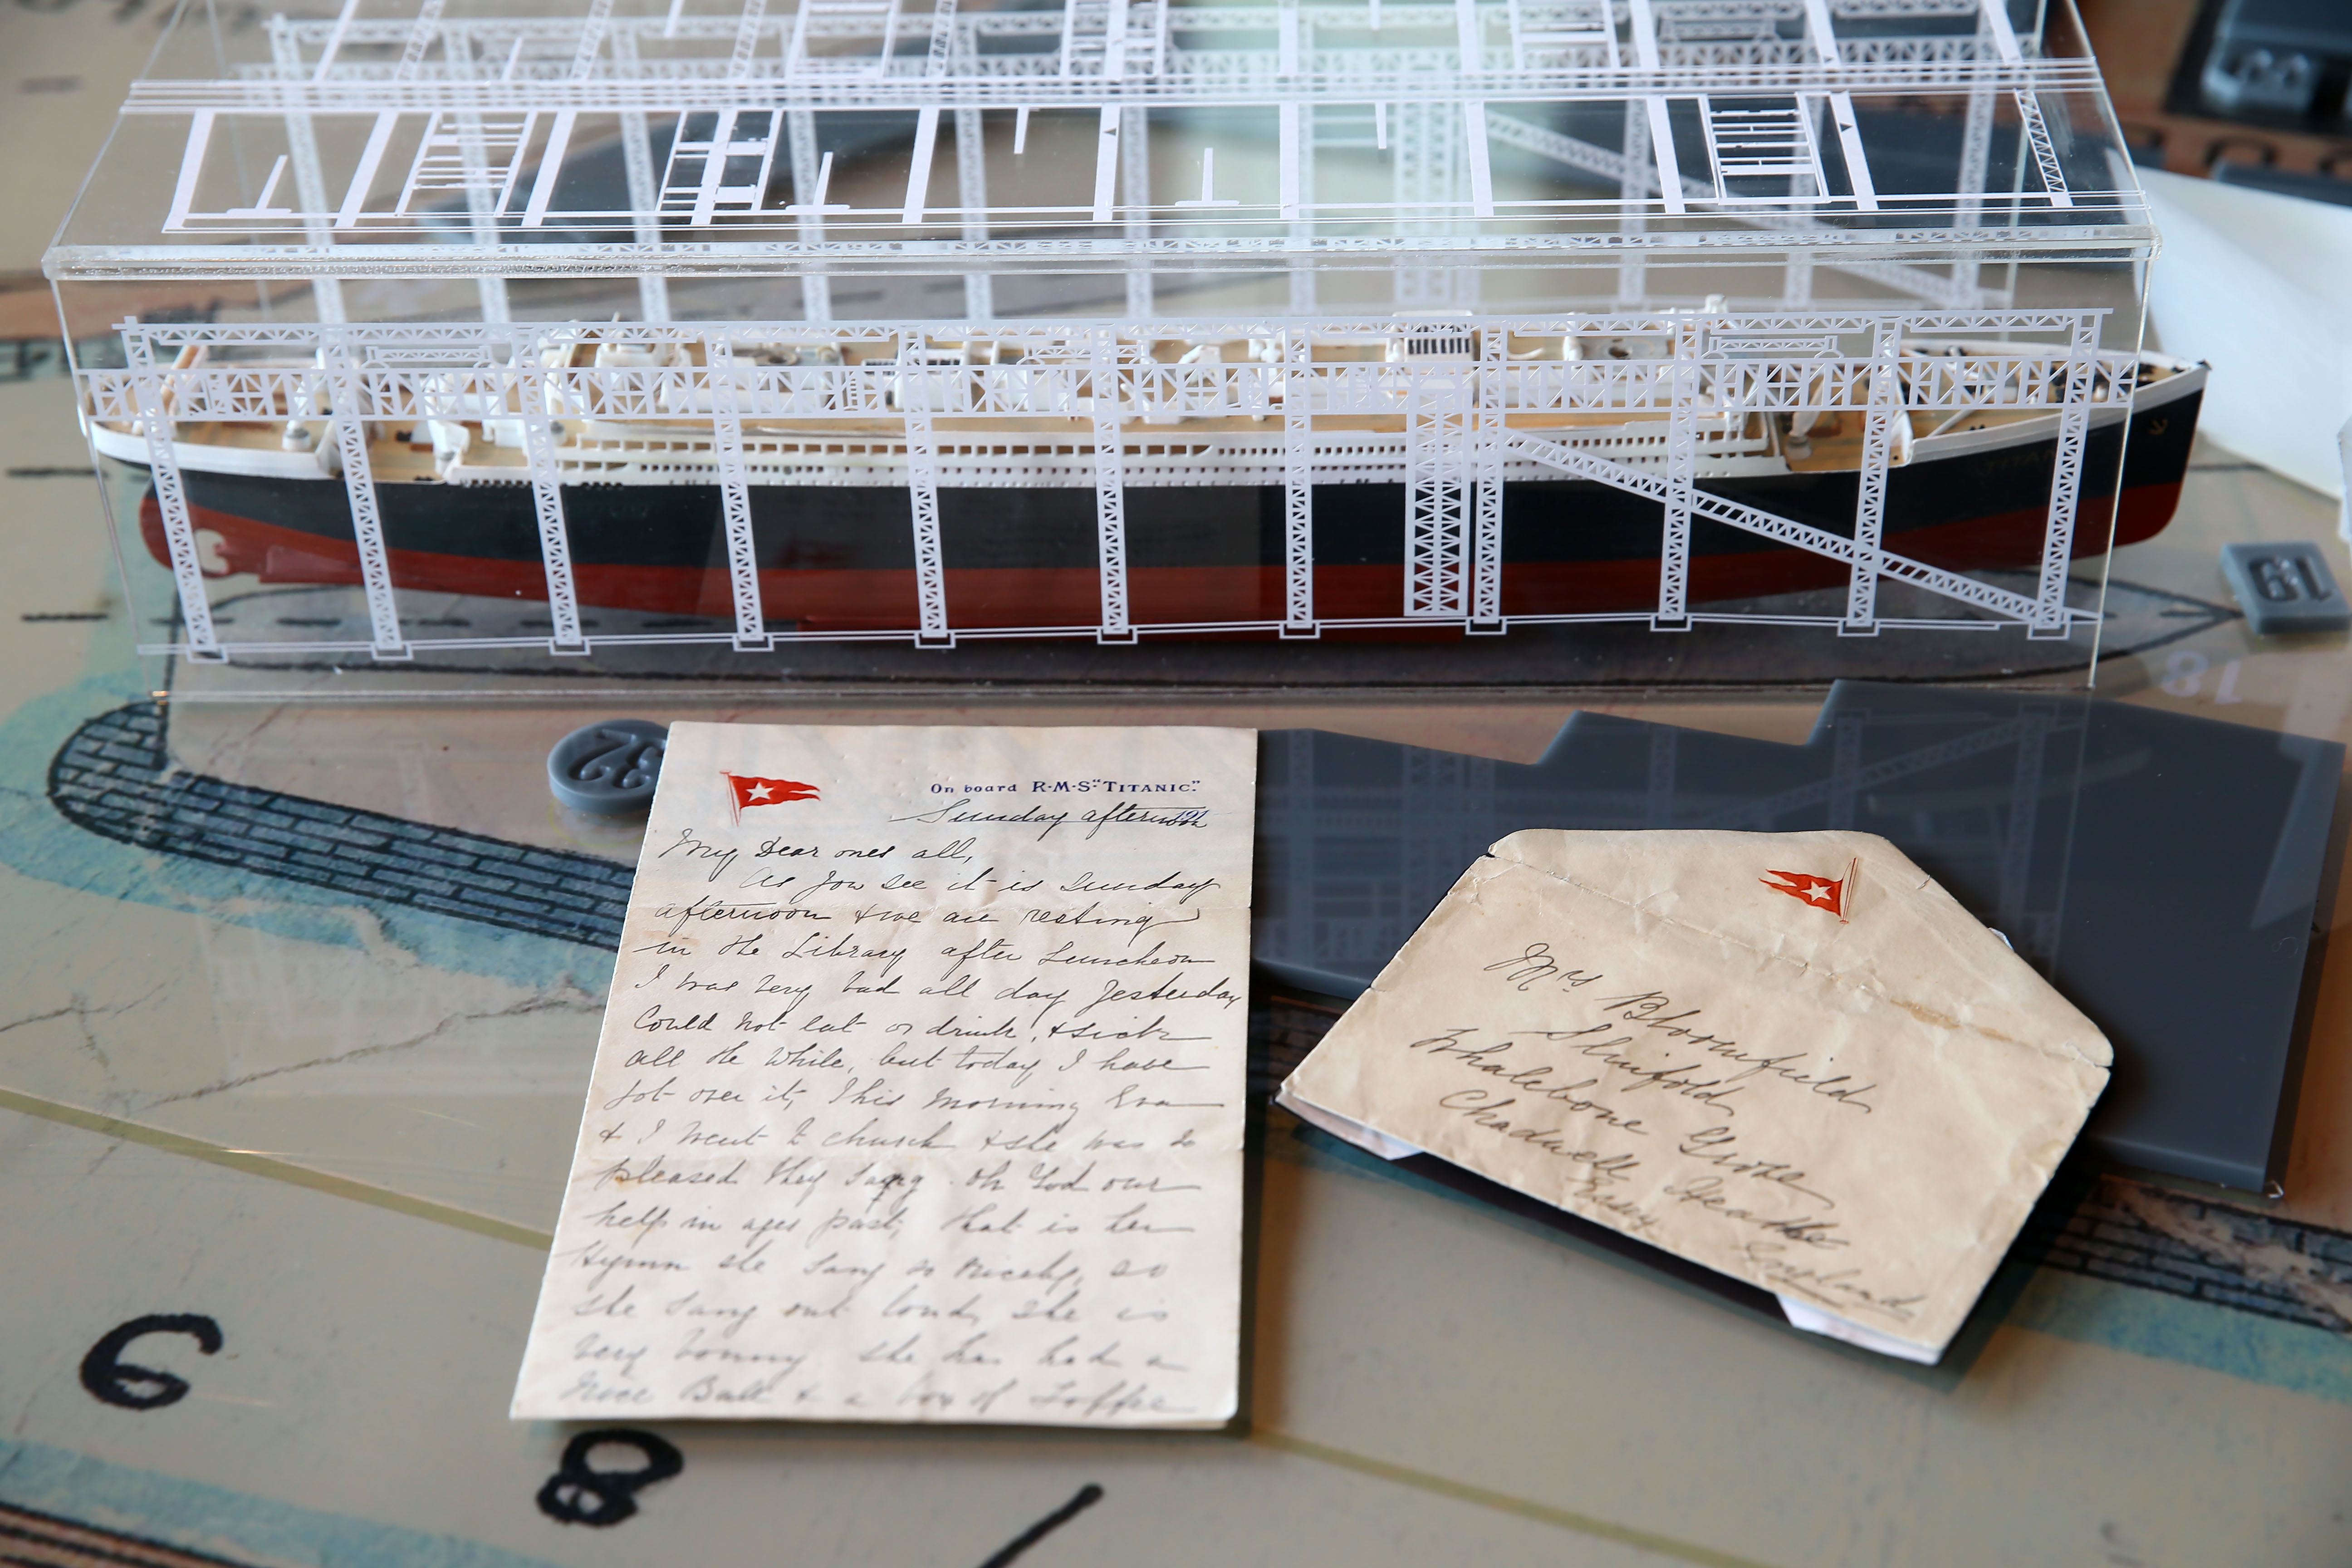 TITAN
19
18
32
On board R·M·S·"TITANIC."
Sunday afternoon 191
My Dear ones all,
As you see it is Sunday
afternoon & we are resting
in the Library after Luncheon
I was very bad all day Yesterday
Could not eat or drink, & sick
all the while, but today I have
got over it, This morning Eva
& I went to church & she was so
pleased they sang Oh God our
help in ages past, that is her
Hymn she sang so nicely, so
she sang out loud, she is
very bonny. She has had a
nice Ball & a box of Toffee
Mrs Bloomfield
Slinfold
Whalebone Grove
Chadwell Heath
Essex England
6
8
1